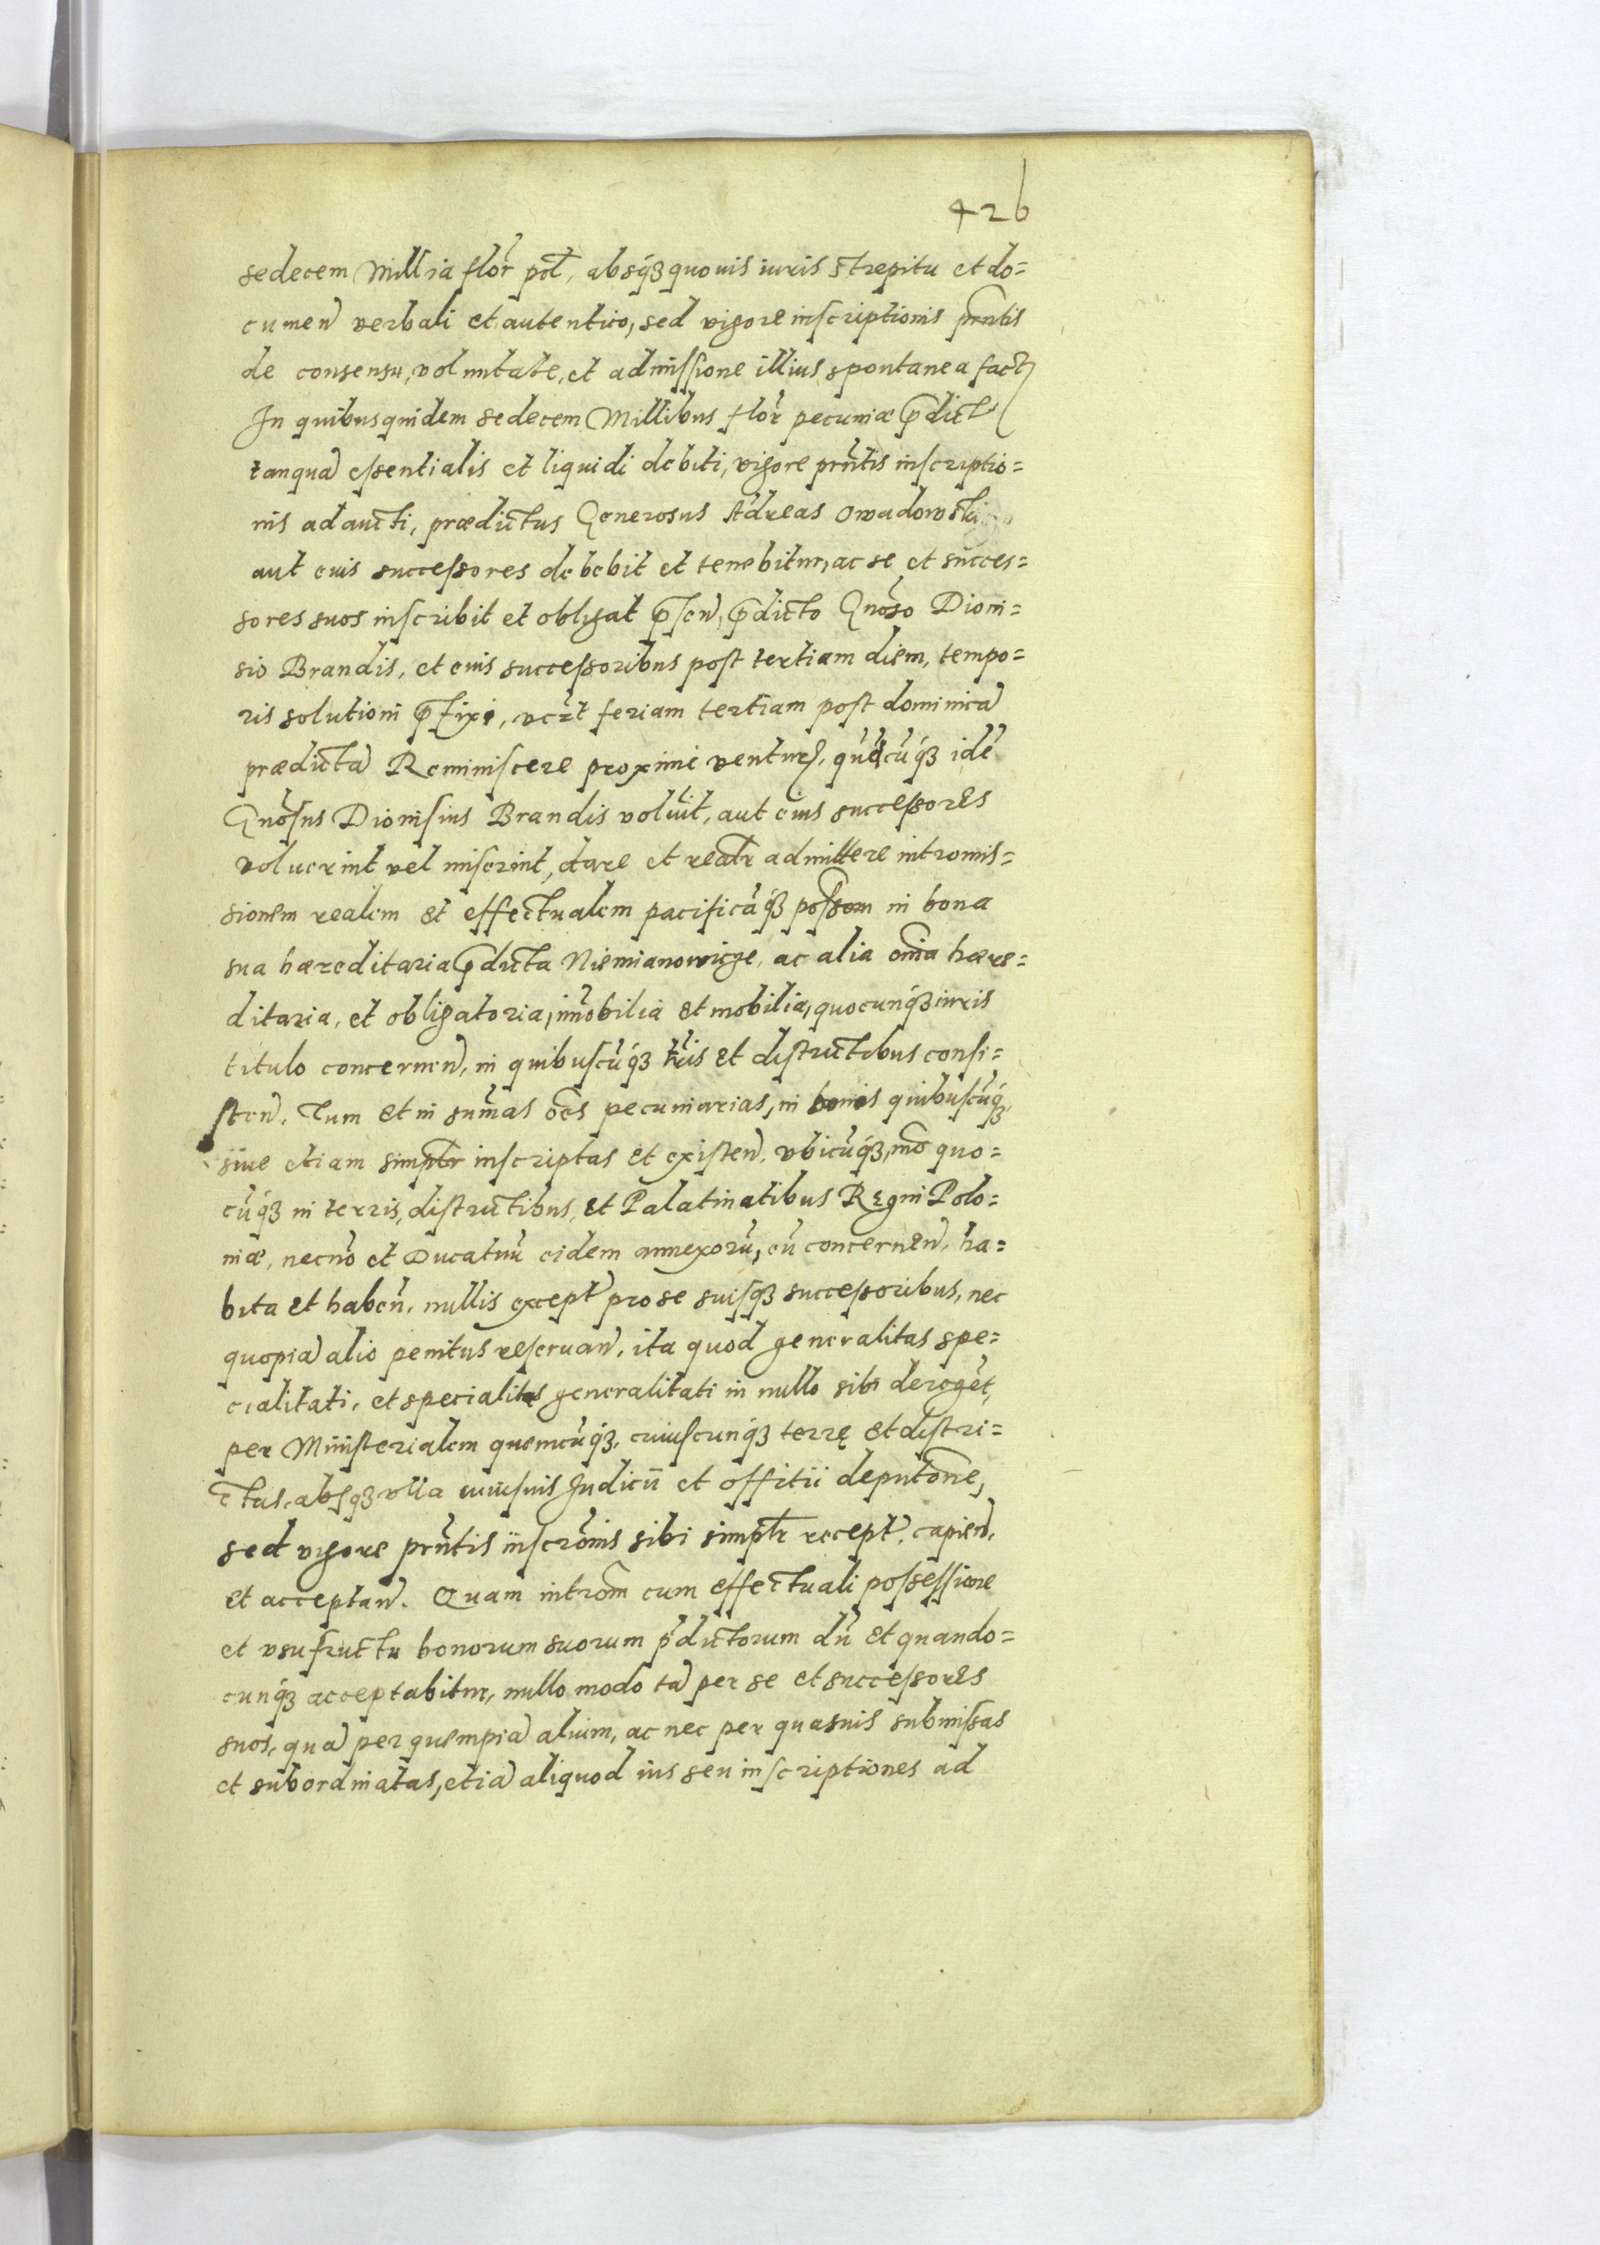 426
sedecem Millia flor̃ pol̃, absq́ꝫ quouis iuris strepitu et do=
cumeñ verbali et autentico, sed vigore inscriptionis prñtis
de consensu, voluntate, et admissione illius spontanea fact
In quibusquidem sedecem Millibus flor̃ pecuniæ p̃dict
tanquã essentialis et liquidi debiti, vigore prñtis inscriptio=
nis adaucti, prædictus Generosus Ãdreas Owadowski
aut eius successores debebit et tenebitur, ac se et succes=
sores suos inscribit et obligat p̃señ, p̃dicto Gñoso Dioni=
sio Brandis, et eius successoribus post tertiam diem, tempo=
ris solutioni p̃fixi, vczt feriam tertiam post dominicã
prædictã Reminiscere proxime ventur, qũcũq́ꝫ idẽ
Gñosus Dionisius Brandis voluĩt, aut eius successores
voluerint vel miserint, dare et realr̃ admittere intromis=
sionem realem et effectualem pacificãq́ꝫ possom̃ in bona
sua hæreditaria p̃dicta Niemianowicze, ac alia om̃ia hære=
ditaria, et obligatoria, im̃obilia et mobilia, quocunq́ꝫ iuris
titulo concerneñ, in quibuscũq́ꝫ tr̃is et districtibus consi=
steñ. Tum et in sum̃as oẽs pecuniarias, in bonis quibuscũq́ꝫ,
siue etiam simplr̃ inscriptas et existeñ, vbicũq́ꝫ, mõ quo=
cũq́ꝫ in terris, districtibus, et Palatinatibus Regni Polo=
niæ, necnõ et Ducatuũ eidem annexorũ, eũ concerneñ, ha=
bita et habeñ, nullis except̃ pro se suisq́ꝫ successoribus, nec
quopiã alio penitus reseruañ, ita quod generalitas spe=
cialitati, et specialitas generalitati in nullo sibi deroget,
per Ministerialem quemcũq́ꝫ, cuiuscunq́ꝫ terrę et distri=
ctus, absq́ꝫ vlla cuiusuis Judicii et offitii deputõne,
sed vigore prñtis inscrõnis sibi simplr̃ recept̃, capieñ,
et acceptañ. Quam introm̃ cum effectuali possessione
et vsufructu bonorum suorum p̃dictorum dũ et quando=
cunq́ꝫ acceptabitur, nullo modo tã per se et successores
suos, quã per quempiã alium, ac nec per quasuis submissas
et subordinatas, etiã aliquod ius seu inscriptiones ad